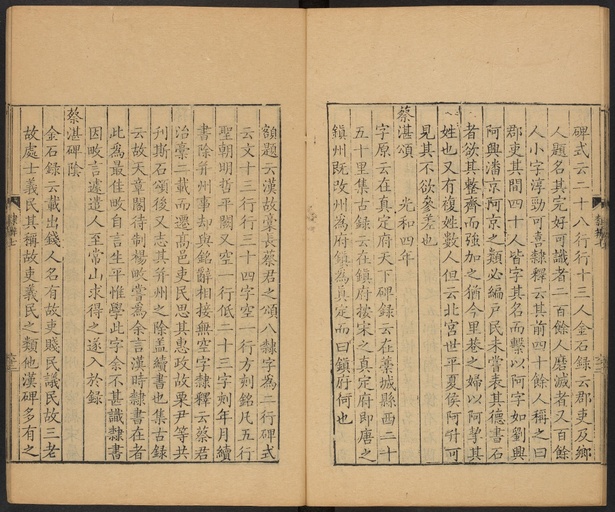 碑式云二十八行行十三人金石錄云郡吏及鄉
人題名其完好可識者二百餘人磨滅者又百餘
人小字淳勁可喜隸釋云其前四十餘人稱之曰
郡吏其間四十人皆字其名而繫以阿字如劉興
阿興潘京阿京之類必編戶民未嘗表其德書石
者欲其整齊而強加之猶今里巷之婦以阿挈其
姓也又有複姓數人但云北宮世平夏侯阿升可
見其不欲參差也
蔡湛頌 光和四年
字原云在真定府天下碑錄云在藁城縣西二十
五十里集古錄云在鎮府按宋之真定府即唐之
鎮州既改州為府鎮為真定而曰鎮府何也
額題云漢故藁長蔡君之頌八隸字為二行碑式
云文十三行行三十四字空一行方刻銘凡五行
聖朝明哲平闕又空一行低二十三字刻年月續
書除并州事却與銘辭相接無空字隸釋云蔡君
治藁二載而遷高邑吏民思其惠政故栗尹等共
刋斯石頌後又志其并州之除盖續書也集古錄
云故天章閣待制楊畋嘗為余言漢時隸書在者
此為最佳畋自言生平惟學此字余不甚識隸書
因畋言遽遣人至常山求得之遂入於錄
蔡湛碑陰
金石錄云載出錢人名有故吏賤民議民故三老
故處士義民其稱故吏義民之類他漢碑多有之